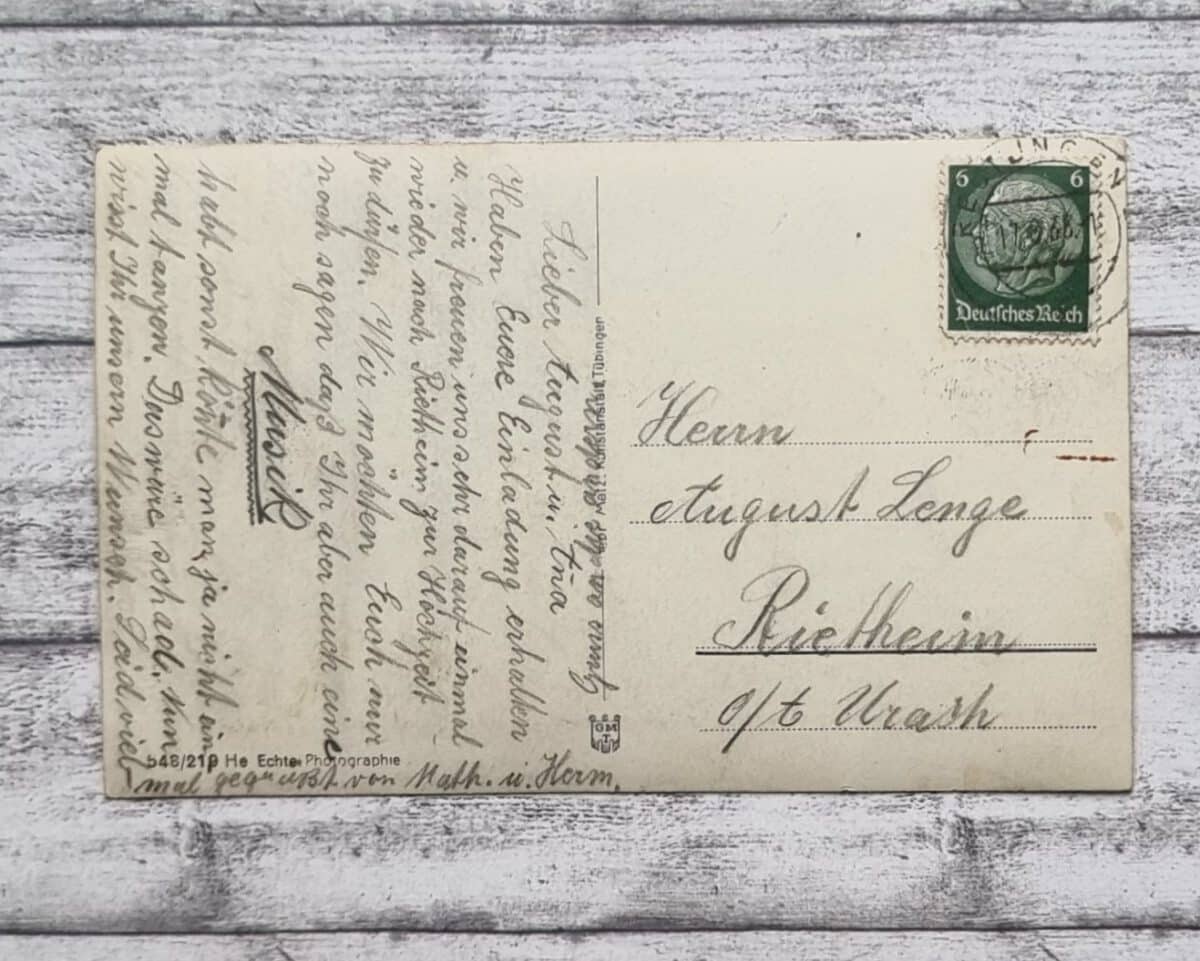 Lieber August u. Ena
Haben Euere Einladung erhalten
u. wir freuen uns sehr darauf einmal
wieder nach Rietheim zur Hochzeit
zu dürfen. Wir möchten Euch nur
noch sagen daß Ihr aber auch eine
Musik
habt sonst könte man ja nicht ein
mal tanzen. Das wäre schad. Nun
wisst Ihr unsern Wunsch. Seid viel
mal gegrüßt von Math. u. Herm.
548/219 He Echte Photographie
Kunstanstalt Tübingen
GM
T
6 6
Deutsches Reich
Herrn
August Lenge
Rietheim
o/t Urach